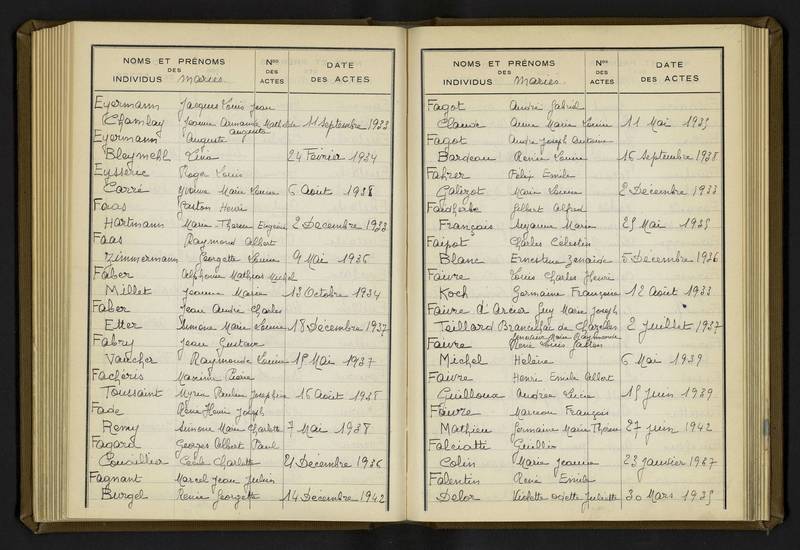 NOMS ET PRÉNOMS
DES
INDIVIDUS mariés
Nos
DES
ACTES
DATE
DES ACTES
Eyermann Jacques Louis Jean
Chamblay Jeanne Amanda Mathilde 11 Septembre 1933
Eyermann Auguste Auguste
Bleymehl Lina 24 Février 1934
Eysseric Roger Louis
Carré Yvonne Marie Louise 6 Août 1938
Faas Gaston Henri
Hartmann Marie Thérèse Eugénie 2 Décembre 1933
Faas Raymond Albert
Zimmermann Georgette Louise 9 Mai 1936
Faber Alphonse Mathias Michel
Millet Jeanne Marie 13 Octobre 1934
Faber Jean André Charles
Etter Simone Marie Louise 18 Décembre 1937
Fabry Jean Gustave
Vaucher Raymonde Lucienne 15 Mai 1937
Fachéris Maxime Pierre
Toussaint Pauline Joséphine 16 Août 1938
Fade René Henri Joseph
Remy Simone Marie Charlotte 7 Mai 1938
Fagard Georges Albert Paul
Cécile Charlotte 21 Décembre 1936
Fagnant Marcel Jean Julien
Burgel Renée Georgette 14 Décembre 1942
NOMS ET PRÉNOMS
DES
INDIVIDUS mariés
Nos
DES
ACTES
DATE
DES ACTES
Fagot André Gabriel
Claude Anne Marie Louise 11 Mai 1935
Fagot André Joseph Antoine
Bardeau Renée Louise 16 Septembre 1938
Fahrer Félix Emile
Galizot Marie Lucienne 2 Décembre 1933
Faidherbe Gilbert Alfred
François Suzanne Marie 25 Mai 1935
Faipot Charles Célestin
Blanc Ernestine Zénaïde 5 Décembre 1936
Faivre Louis Charles Henri
Koch Germaine Françoise 12 Août 1933
Faivre d'Arcier Guy Marie Joseph
Teillard Rancilhac de Chazelles 2 Juillet 1937
Marie Raymonde
Faivre René Louis Gaston
Michel Hélène 6 Mai 1939
Faivre Henri Emile Albert
Guilloux Andrée Lucie 15 Juin 1939
Faivre Marceau François
Mathieu Germaine Marie Thérèse 27 Juin 1942
Falciatti Guillio
Colin Marie Jeanne 23 Janvier 1937
Falentin René Emile
Delor Violette Odette Juliette 30 Mars 1935